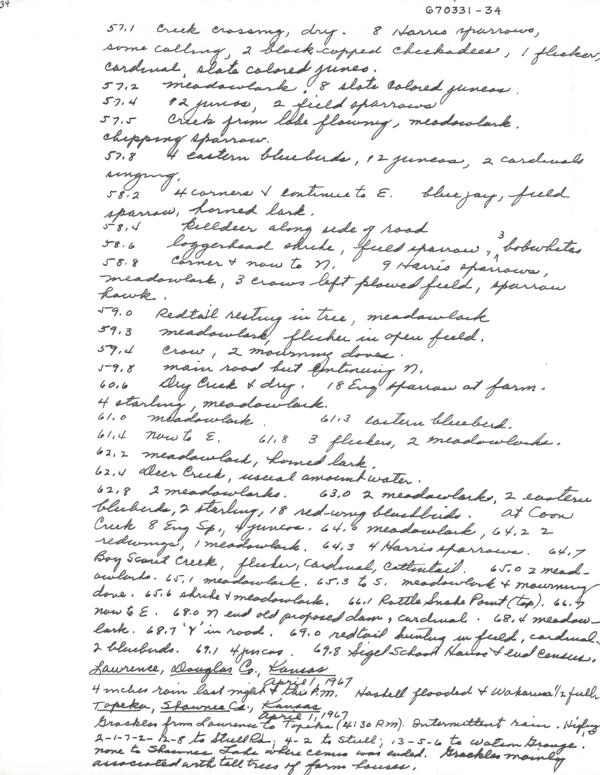 34
670331-34
57.1 Creek crossing, dry. 8 Harris sparrows,
some calling, 2 black-capped chickadees, 1 flicker,
cardinal, slate colored junco.
57.2 meadowlark, 8 slate colored juncos.
57.4 12 juncos, 2 field sparrows
57.5 Creek from lake flowing, meadowlark.
chipping sparrow.
57.8 4 eastern bluebirds, 12 juncos, 2 cardinals
singing.
58.2 4 corners & continue to E. bluejay, field
sparrow, horned lark.
58.4 killdeer along side of road
58.6 loggerhead shrike, field sparrow, 3 bobwhites
58.8 corner & now to N. 9 Harris sparrows,
meadowlark, 3 crows left plowed field, sparrow
hawk.
59.0 Redtail resting in tree, meadowlark
59.3 meadowlark, flicker in open field.
59.4 crow, 2 mourning doves.
59.8 main road but continuing N.
60.6 Dry Creek & dry. 18 Eng sparrow at farm.
4 starling, meadowlark.
61.0 meadowlark. 61.3 eastern bluebird.
61.4 now to E. 61.8 3 flickers, 2 meadowlarks.
62.2 meadowlark, horned lark.
62.4 Deer Creek, usual amount water.
62.8 2 meadowlarks. 63.0 2 meadowlarks, 2 eastern
bluebirds, 2 starling, 18 red-wing blackbirds. at Coon
Creek 8 Eng Sp, 4 juncos. 64.0 meadowlark, 64.2 2
redwings, 1 meadowlark. 64.3 4 Harris sparrows. 64.7
Boy Scout Creek, flicker, cardinal, cottontail. 65.0 2 mead-
owlarks. 65.1 meadowlark. 65.3 to S. meadowlark & mourning
dove. 65.6 shrike & meadowlark. 66.1 Rattle Snake Point (top). 66.7
now to E. 68.0 N end old proposed dam, cardinal. 68.4 meadow-
lark. 68.7 'Y' in road. 69.0 redtail hunting in field, cardinal.
2 bluebirds. 69.1 4 juncos. 69.8 Sigel School House & end census.
Lawrence, Douglas Co., Kansas
April 1, 1967
4 inches rain last night & this P.M. Haskell flooded & Wakarusa 1/2 full.
Topeka, Shawnee Co., Kansas
April 1, 1967
Grackles from Lawrence to Topeka (4:30 PM). Intermittent rain.
2-1-7-2-12-8 to Stull Rd; 4-2 to Stull; 13-5-6 to Watson Grange.
none to Shawnee Lake where census was ended. Grackles mainly
associated with tall trees of farm houses.